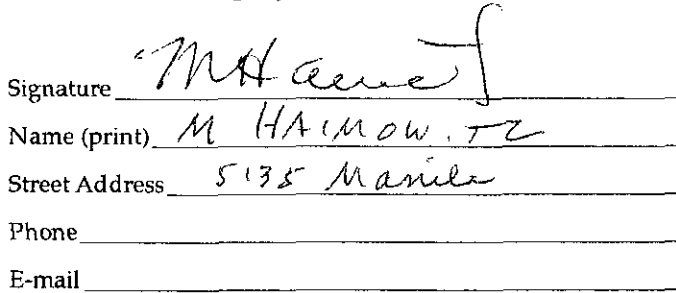 Signature
Name (print) M HAIMOW.TZ
Street Address 5135 Manila
Phone
E-mail